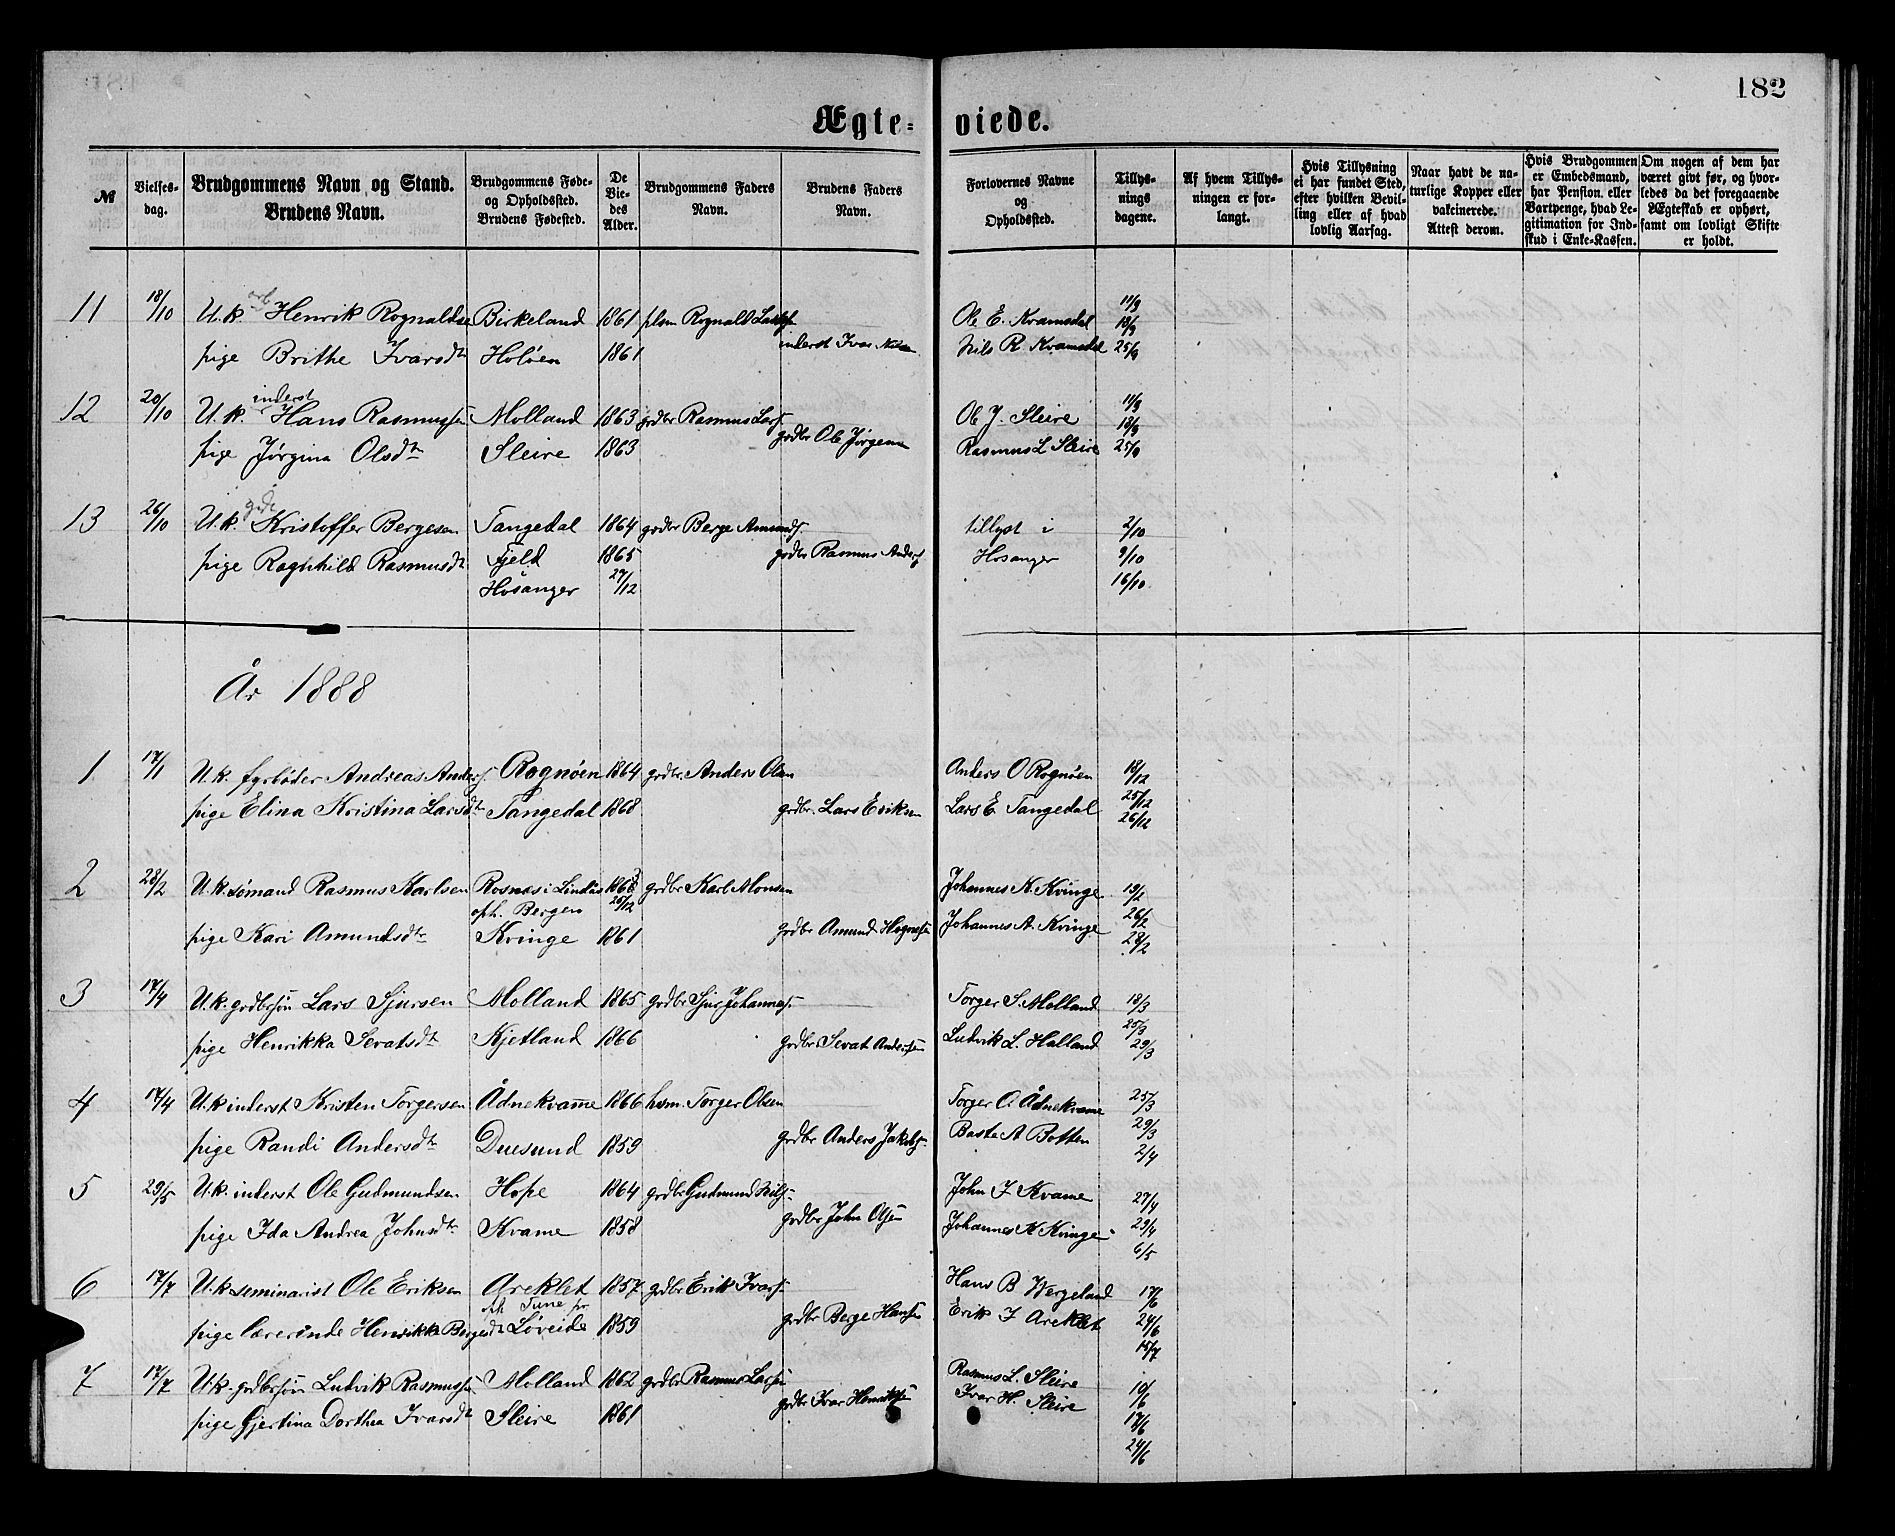 182
Ægte-viede.
№
Vielses-dag.
Brudgommens Navn og Stand.
Brudens Navn.
Brudgommens Føde-
og Opholdssted.
Brudens Fødested.
De
Vie-
des
Alder.
Brudgommens Faders
Navn.
Brudens Faders
Navn.
Forlovernes Navne
og
Opholdssted.
Tillys-
nings
dagene.
Af hvem Tillys-
ningen er for-
langt.
Hvis Tillysning
ei har fundet Sted,
efter hvilken Bevil-
ling eller af hvad
lovlig Aarsag.
Naar havt de na-
turlige Kopper eller
vakcinerede.
Attest derom.
Hvis Brudgommen
er Embedsmand,
har Pension. eller
Vartpenge, hvad Le-
gitimation for Ind-
skud i Enke-Kassen.
Om nogen af dem har
været givt før, og hvor-
ledes da det foregaaende
Ægteskab er ophørt,
samt om lovligt Skifte
er holdt.
11 18/10 U.k. arb Henrik Rognaldsen Birkeland 1861 plsm Rognald Larssen Ole E. Kvamsdal 11/9 18/9
pige Brithe Ivarsdtr Holøen 1861 inderst Ivar Nilsen Nils R. Kvamsdal 25/9
12 20/10 U.k. inderst Hans Rasmussen Molland 1863 grdbr Rasmus Larss. Ole J. Sleire 11/9 18/9
pige Jørgina Olsdtr Sleire 1863 grdbr Ole Jørgensen Rasmus L Sleire 25/9
13 26/10 U.k. grdbr Kristoffer Bergesen Tangedal 1864 grdbr Berge Amunds. tillyst i 2/10
pige Ragnhild Rasmusdtr Fjeld 1865 grdbr Rasmus Anders. Hosanger 9/10
Hosanger 27/12 16/10
År 1888
1 17/1 U.k. fyrbøder Andreas Anders. Rognøen 1864 grdbr. Anders Olsen Anders O Rognøen 18/12
pige Elina Kristina Larsdtr Tangedal 1868 grdbr. Lars Eriksen Lars E. Tangedal 25/12 26/12
2 28/2 U.k. sømand Rasmus Karlsen Rosnes i Lindås grdbr Karl Monsen Johannes K. Kvinge 19/2
oph. Bergen 25/12
pige Kari Amundsdtr Kvinge 1861 grdbr Amund Hognesen Johannes A. Kvinge 26/2 28/2
3 17/4 U.k. grdbrsøn Lars Sjursen Molland 1865 grdbr Sjur Johanness. Torger S. Molland 18/3
pige Henrikka Sevatsdtr Kjetland 1866 grdbr. Sevat Anderssen Ludvik L. Halland 25/3 29/3
4 17/4 U.k inderst Kristen Torgersen Ådnekvame 1866 hsm. Torger Olsen Torger O. Ådnekvame 25/3
pige Randi Andersdtr Duesund 1859 grdbr Anders Jakobs. Baste A Botten 29/3 2/4
5 29/5 U.k. inderst Ole Gudmundsen Hope 1864 grdbr Gudmund Nils. John J Kvame 27/4
pige Ida Andrea Johnsdtr Kvame 1858 grdbr John Olsen Johannes K Kvinge 29/4 6/5
6 17/7 U.k seminarist Ole Eriksen Areklet 1857 grdbr Erik Ivars. Hans B Wergeland 17/6
oph Tune pr
pige lærerinde Henrikke Bergesdtr Løveide 1859 grdbr Berge Hanssen Erik I Areklet 24/6 15/7
7 17/7 U.k. grdbrsøn Ludvik Rasmussen Molland 1862 grdbr Rasmus Larsen Rasmus L. Sleire 10/6
pige Gjertina Dorthea Ivarsdtr Sleire 1861 grdbr Ivar Henriksen Ivar H. Sleire 17/6 24/6